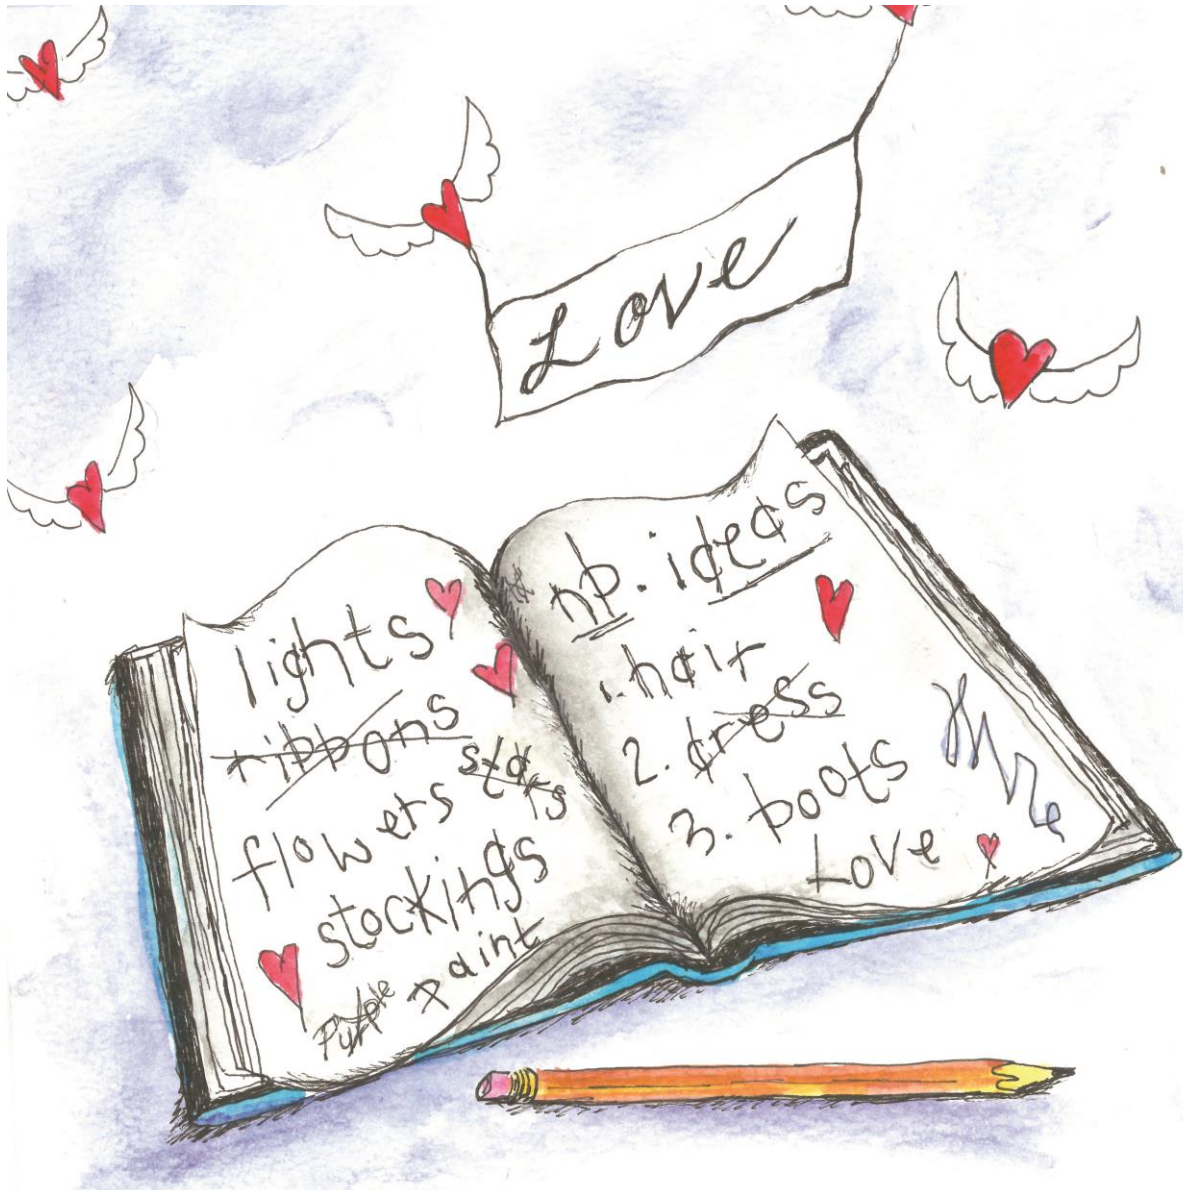 Love
lights
ribbons
flowers stars
stockings
Purple paint
np. ideas
1. hair
2. dress
3. boots
Love